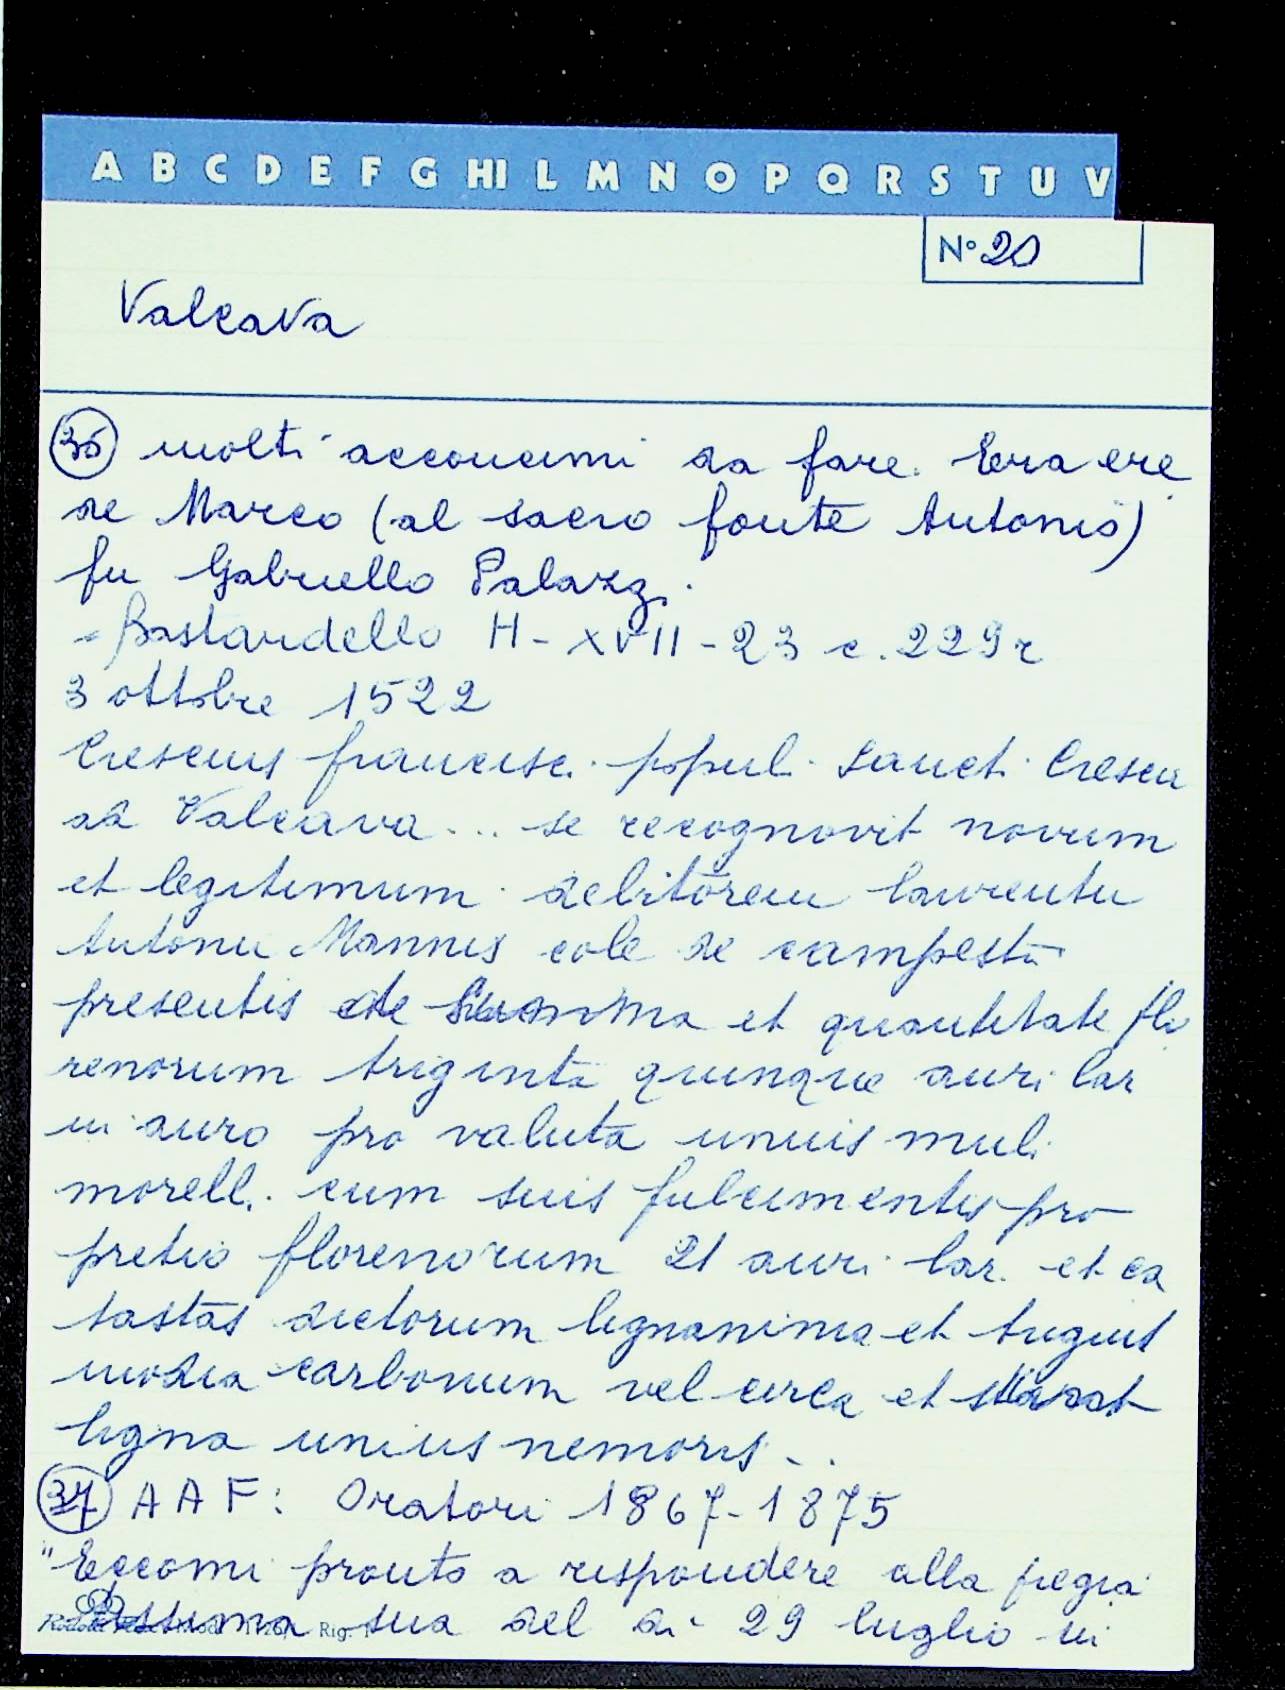 A B C D E F G HI L M N O P Q R S T U V
N° 20
Valcava
36 molti acconcimi da fare. Era ere
de Marco (al sacro fonte Antonio)
fu Gabriello Palazz.
- Bastardello H-XVII-23 c. 229r
3 ottobre 1522
Crescius francisc. popul. Sancti Cresci
ad Valcava... se recognovit novum
et legitimum debitorem laurentii
Antonii Mannis cole de campestri
presentis de summa et quantitate flo
renorum triginta quinque auri lar
in auro pro valuta unuis muli
morell. cum suis fulcimentis pro
pretio florenorum 21 auri lar. et ca
tastas dictorum lignanima et trigint
modia carbonum vel circa et
ligna unius nemoris..
37 AAF: Oratori 1867-1875
"Eccomi pronto a rispondere alla pregia
tissima sua del dì 29 luglio in
Rig. 1